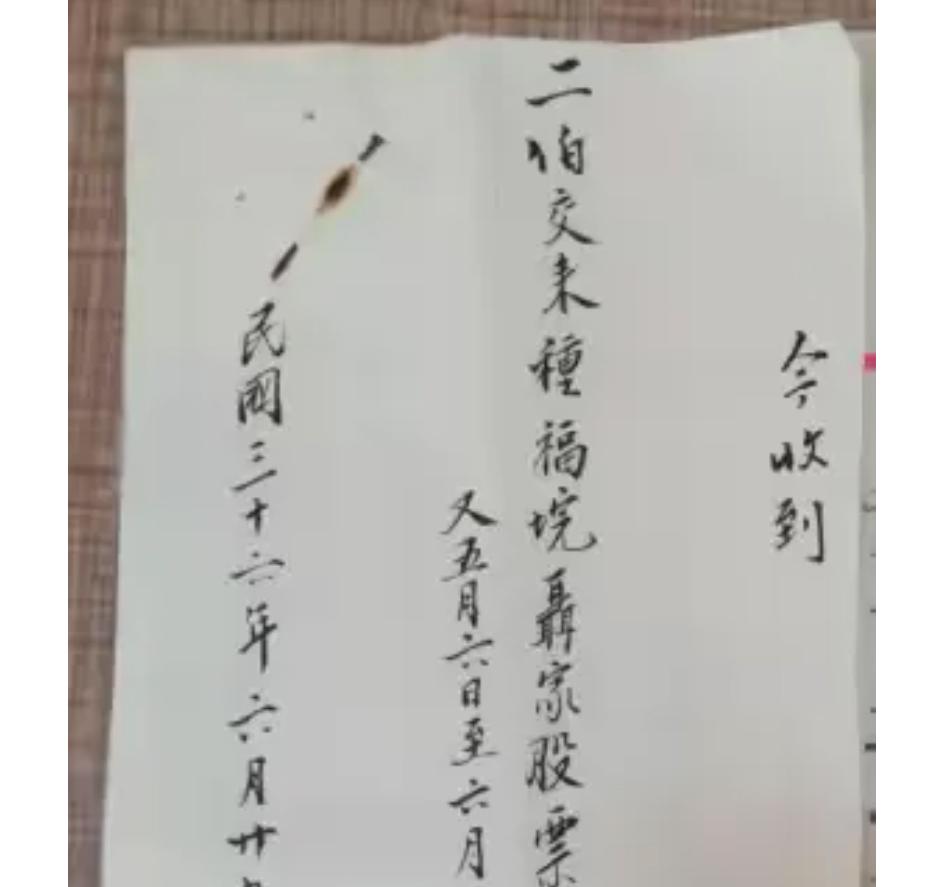 今收到
二伯交来種福垸聶家股票
又五月六日至六月
民國三十六年六月廿